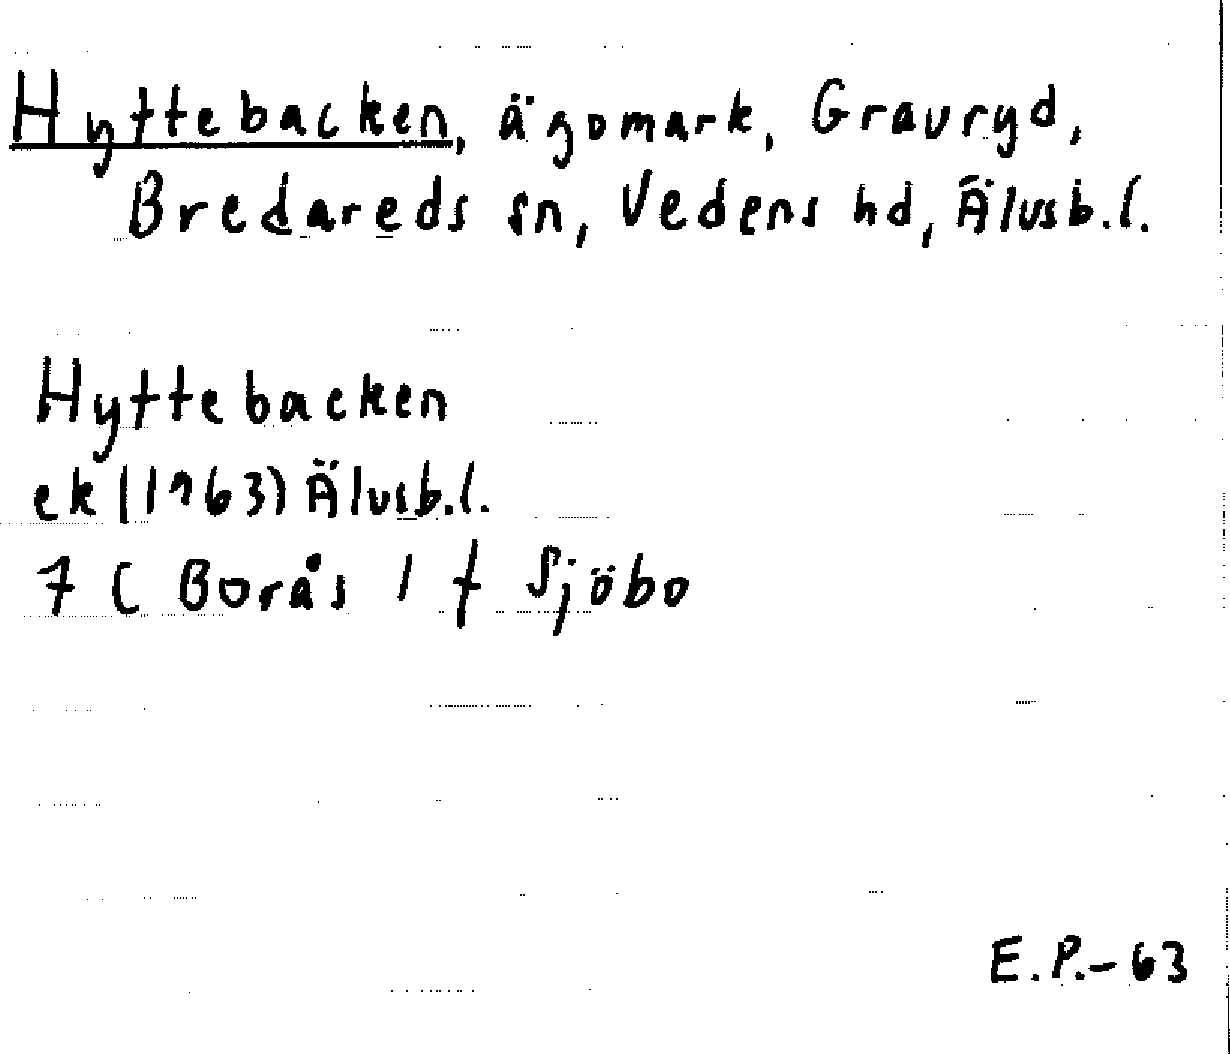 Hyttebacken, ägomark, Gravryd,
Bredareds sn, Vedens hd, Älvsb.l.
Hyttebacken
ek (1963) Älvsb.l.
7 C Borås 1 f Sjöbo
E.P.-63